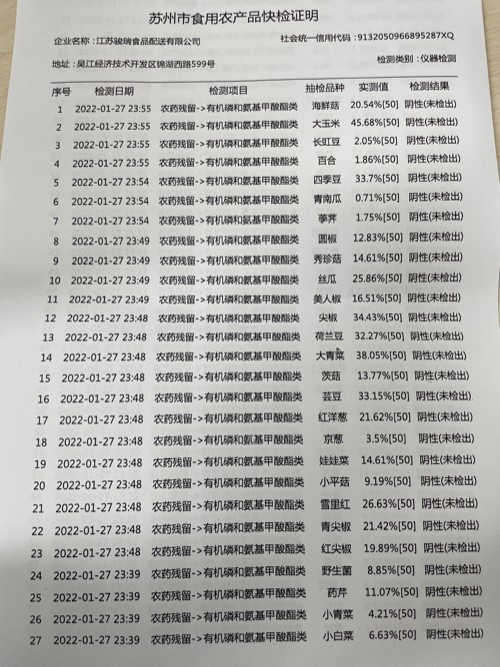 苏州市食用农产品快检证明
企业名称：江苏骏瑞食品配送有限公司 社会统一信用代码：9132050966895287XQ
地址：吴江经济技术开发区锦湖西路599号 检测类别：仪器检测
序号 检测日期 检测项目 抽检品种 实测值 检测结果
1 2022-01-27 23:55 农药残留->有机磷和氨基甲酸酯类 海鲜菇 20.54%[50] 阴性(未检出)
2 2022-01-27 23:55 农药残留->有机磷和氨基甲酸酯类 大玉米 45.68%[50] 阴性(未检出)
3 2022-01-27 23:55 农药残留->有机磷和氨基甲酸酯类 长豇豆 2.05%[50] 阴性(未检出)
4 2022-01-27 23:55 农药残留->有机磷和氨基甲酸酯类 百合 1.86%[50] 阴性(未检出)
5 2022-01-27 23:54 农药残留->有机磷和氨基甲酸酯类 四季豆 33.7%[50] 阴性(未检出)
6 2022-01-27 23:54 农药残留->有机磷和氨基甲酸酯类 青南瓜 0.71%[50] 阴性(未检出)
7 2022-01-27 23:54 农药残留->有机磷和氨基甲酸酯类 荸荠 1.75%[50] 阴性(未检出)
8 2022-01-27 23:49 农药残留->有机磷和氨基甲酸酯类 圆椒 12.83%[50] 阴性(未检出)
9 2022-01-27 23:49 农药残留->有机磷和氨基甲酸酯类 秀珍菇 14.61%[50] 阴性(未检出)
10 2022-01-27 23:49 农药残留->有机磷和氨基甲酸酯类 丝瓜 25.86%[50] 阴性(未检出)
11 2022-01-27 23:49 农药残留->有机磷和氨基甲酸酯类 美人椒 16.51%[50] 阴性(未检出)
12 2022-01-27 23:48 农药残留->有机磷和氨基甲酸酯类 尖椒 34.43%[50] 阴性(未检出)
13 2022-01-27 23:48 农药残留->有机磷和氨基甲酸酯类 荷兰豆 32.27%[50] 阴性(未检出)
14 2022-01-27 23:48 农药残留->有机磷和氨基甲酸酯类 大青菜 38.05%[50] 阴性(未检出)
15 2022-01-27 23:48 农药残留->有机磷和氨基甲酸酯类 茨菇 13.77%[50] 阴性(未检出)
16 2022-01-27 23:48 农药残留->有机磷和氨基甲酸酯类 芸豆 33.15%[50] 阴性(未检出)
17 2022-01-27 23:48 农药残留->有机磷和氨基甲酸酯类 红洋葱 21.62%[50] 阴性(未检出)
18 2022-01-27 23:48 农药残留->有机磷和氨基甲酸酯类 京葱 3.5%[50] 阴性(未检出)
19 2022-01-27 23:48 农药残留->有机磷和氨基甲酸酯类 娃娃菜 14.61%[50] 阴性(未检出)
20 2022-01-27 23:48 农药残留->有机磷和氨基甲酸酯类 小平菇 9.19%[50] 阴性(未检出)
21 2022-01-27 23:48 农药残留->有机磷和氨基甲酸酯类 雪里红 26.63%[50] 阴性(未检出)
22 2022-01-27 23:48 农药残留->有机磷和氨基甲酸酯类 青尖椒 21.42%[50] 阴性(未检出)
23 2022-01-27 23:48 农药残留->有机磷和氨基甲酸酯类 红尖椒 19.89%[50] 阴性(未检出)
24 2022-01-27 23:39 农药残留->有机磷和氨基甲酸酯类 野生菌 8.85%[50] 阴性(未检出)
25 2022-01-27 23:39 农药残留->有机磷和氨基甲酸酯类 药芹 11.07%[50] 阴性(未检出)
26 2022-01-27 23:39 农药残留->有机磷和氨基甲酸酯类 小青菜 4.21%[50] 阴性(未检出)
27 2022-01-27 23:39 农药残留->有机磷和氨基甲酸酯类 小白菜 6.63%[50] 阴性(未检出)